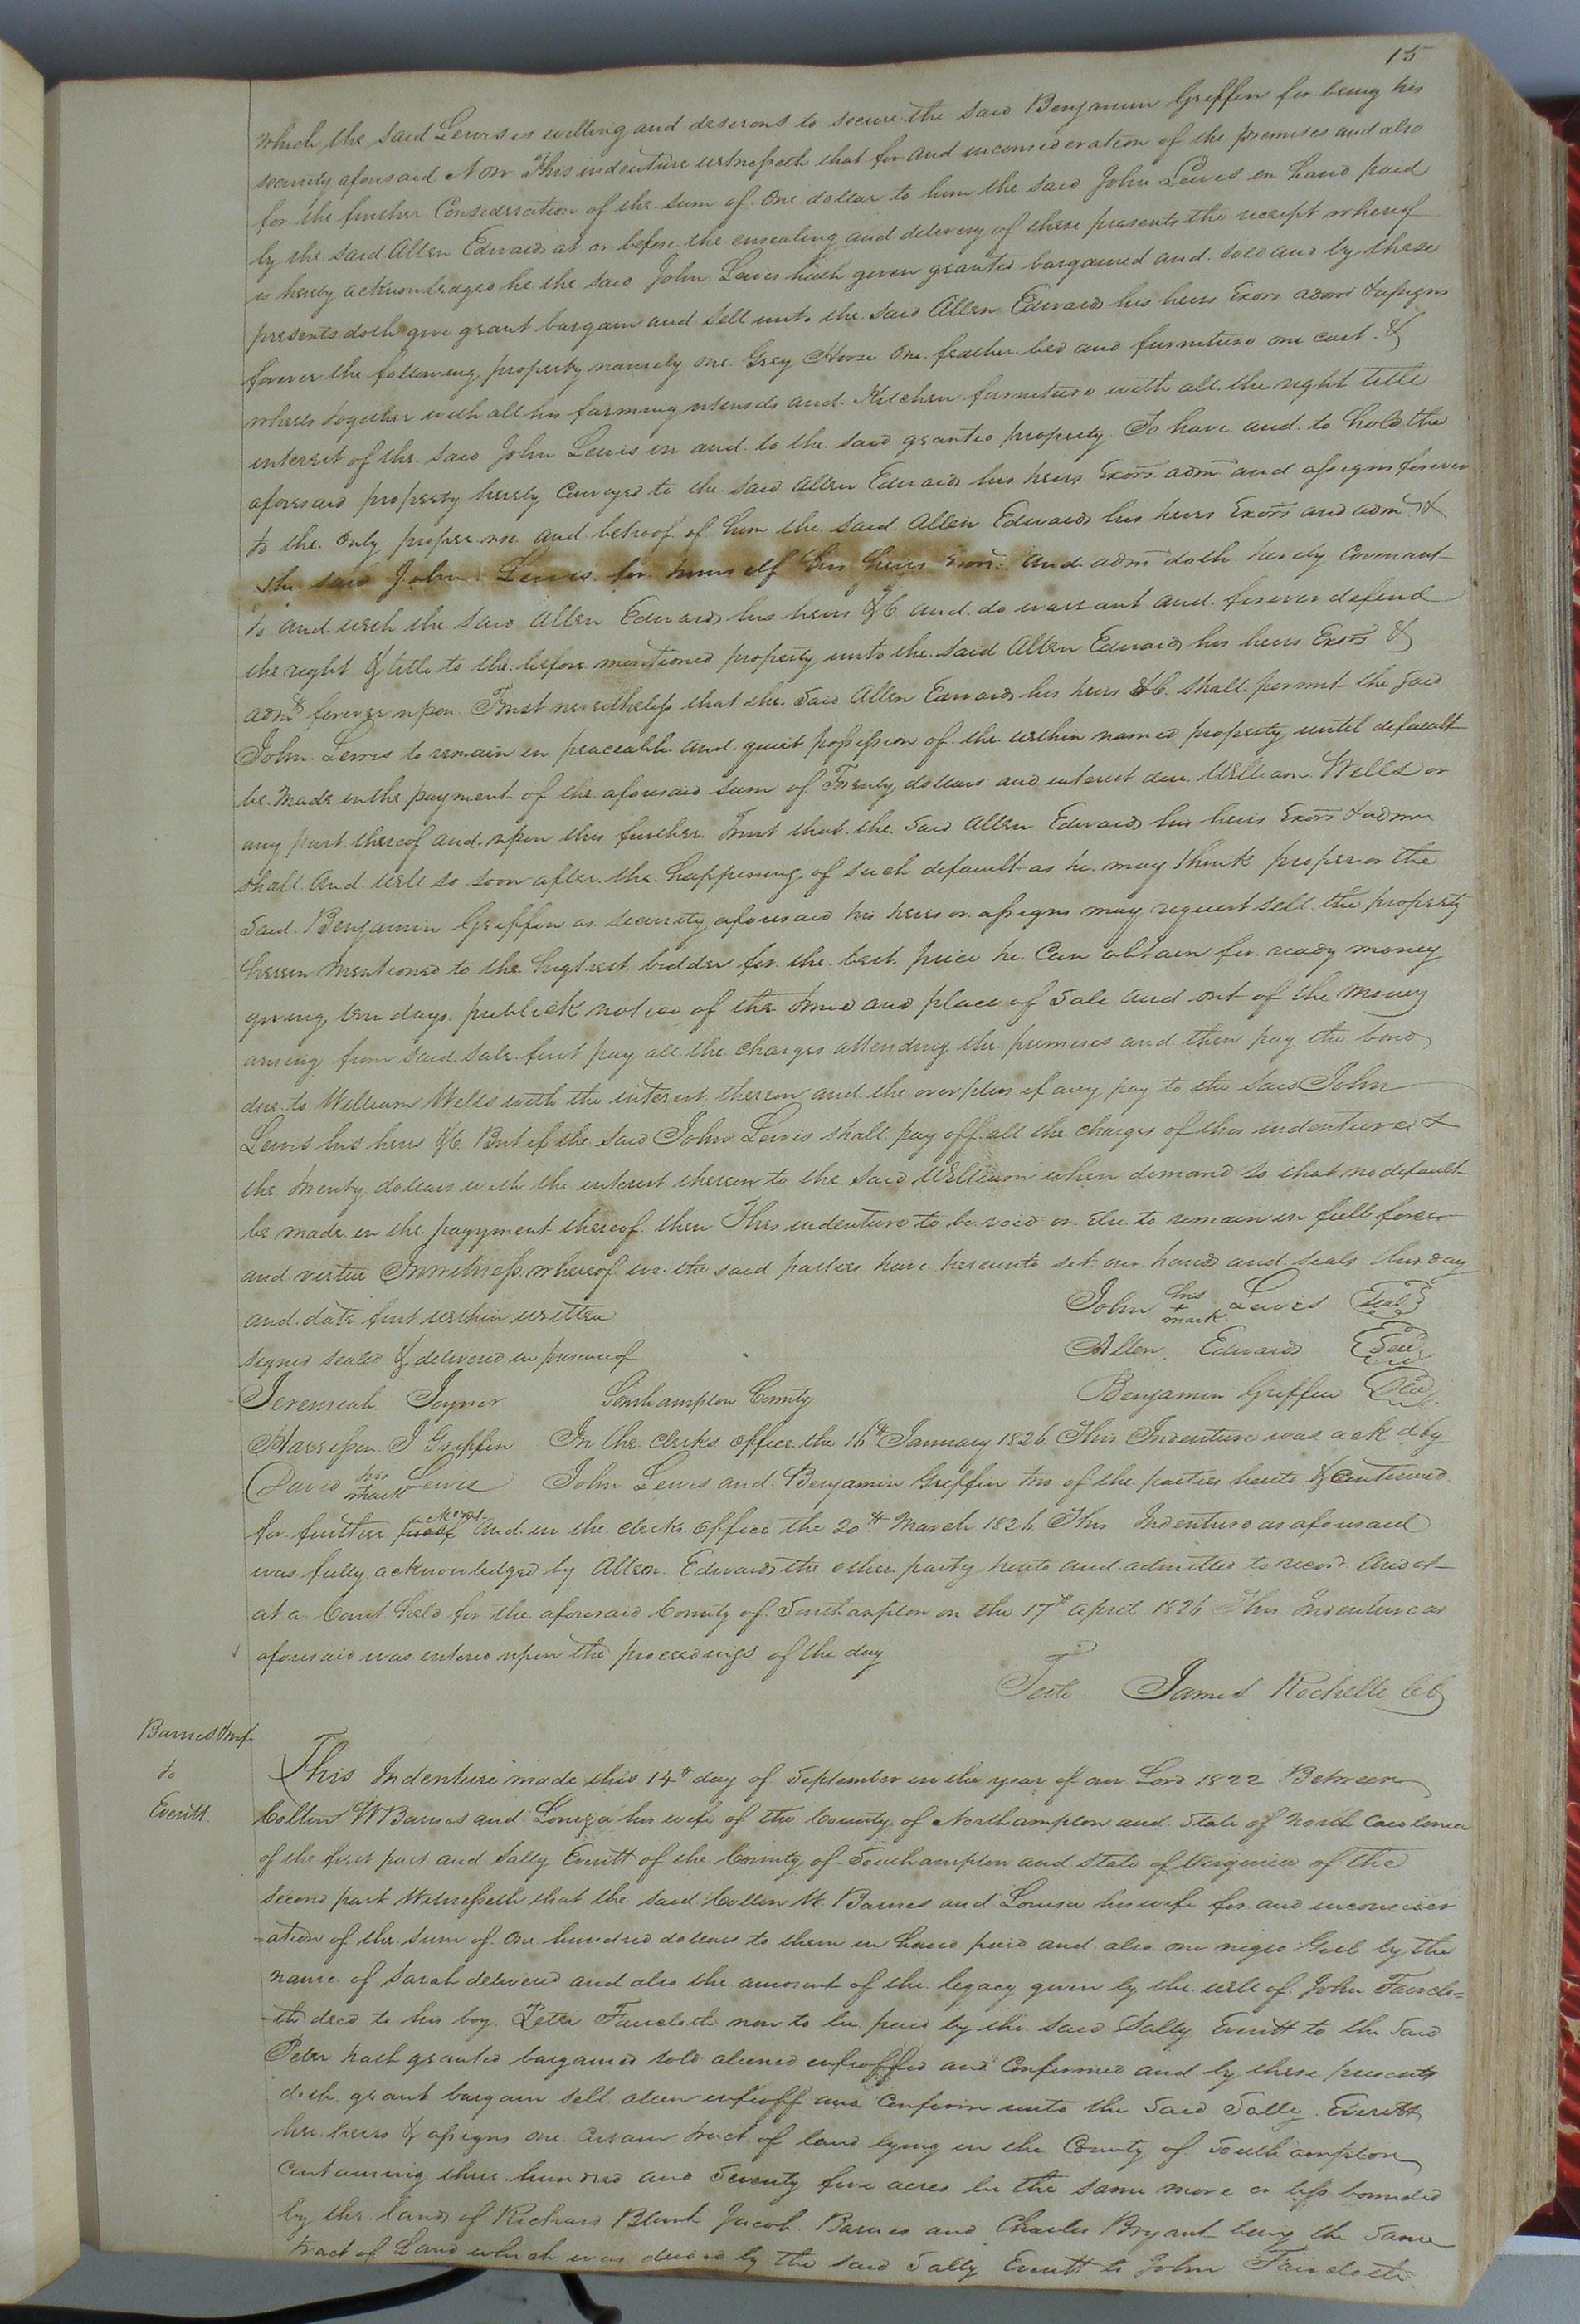 15
which the said Lewis is willing and desirous to secure the said Benjamin Griffin for being his
security aforesaid Now This indenture witnesseth that for and inconsideration of the premises and also
for the further Consideration of the sum of One dollar to him the said John Lewis in hand paid
by the said Allen Edwards at or before the ensealing and delivery of these presents the receipt whereof
is hereby acknowledged he the said John Lewis hath given granted bargained and sold and by these
presents doth give grant bargain and sell unto the said Allen Edwards his heirs Exors admrs & assigns
forever the following property namely one Grey Horse One feather bed and furniture one cart &
wheels together with all his farming utensils and Kitchen furniture with all the right title
interest of the said John Lewis in and to the said granted property To have and to hold the
aforesaid property hereby Conveyed to the said Allen Edwards his heirs Exors adm and assigns forever
to the Only proper use and behoof of him the said Allen Edwards his heirs Exors and adms &
the said John Lewis for himself his heirs Exors and adm doth hereby Covenant
to and with the said Allen Edwards his heirs &C and do warrant and forever defend
the right & title to the before mentioned property unto the said Allen Edwards his heirs Exors &
adms forever upon Trust nevertheless that the Said Allen Edwards his heirs &C shall permit the Said
John Lewis to remain in peaceable and quiet possession of the within named property until default
be made in the payment of the aforesaid sum of Twenty dollars and interest due William Wells or
any part thereof and upon this further Trust that the Said Allen Edwards his heirs Exors & admrs
shall And will so soon after the happening of such default as he may think proper or the
Said Benjamin Griffin as security aforesaid his heirs or assigns may request sell the property
herein mentioned to the highest bidder for the best price he Can obtain for ready money
giving ten days publick notice of the time and place of Sale and out of the Money
arising from said Sale first pay all the charges attending the premises and then pay the bond
due to William Wells with the interest thereon and the overplus if any pay to the said John
Lewis his heirs &C But if the said John Lewis shall pay off all the charges of this indenture &
the twenty dollars with the interest thereon to the said William when demand so that no default
be made in the payyment thereof then This indenture to be void or else to remain in full force
and virtue Inwitness whereof we the said parties have hereunto set our hands and seals this day
and date first within written
John his + mark Lewis Seal
signed sealed & delivered in presence of
Allen Edwards Seal
Jeremiah Joyner
Southampton County
Benjamin Griffin Seal
Harrison J Griffin
In the clerks office the 16th January 1826 This Indenture was ackd by
David his mark Lewis
John Lewis and Benjamin Griffin two of the parties hereto & Continued
for further proof ackmt And in the clerks office the 20th March 1826 This Indenture as aforesaid
was fully acknowledged by Allen Edwards the other party hereto and admitted to record And at
at a Court held for the aforesaid County of Southampton on the 17th April 1826 This Indenture as
aforesaid was entered upon the proceedings of the day
Teste James Rochelle CC
Barnes &wife
to
Everitt
This Indenture made this 14th day of September in the year of our Lord 1822 Between
Collin W Barnes and Louiza his wife of the County of Northampton and State of North Carolina
of the first part and Sally Everitt of the County of Southampton and State of Virginia of the
Second part Witnesseth that the said Collin W. Barnes and Louisa his wife for and inconsider
-ation of the sum of One hundred dollars to them in hand paid and also one negro Girl by the
name of Sarah delivered and also the amount of the legacy given by the will of John Fairclo=
-th decd to his boy Peter Faircloth now to be paid by the said Sally Everitt to the Said
Peter hath granted bargained sold aliened enfeoffed and Confirmed and by these presents
doth grant bargain sell alien enfeoff and Confirm unto the Said Sally Everitt
her heirs & assigns one certain tract of land lying in the County of Southampton
Containing three hundred and Seventy five acres be the same more or less bounded
by the lands of Richard Blunt Jacob Barnes and Charles Bryant being the Same
tract of Land which was deeded by the said Sally Everitt to John Faircloth